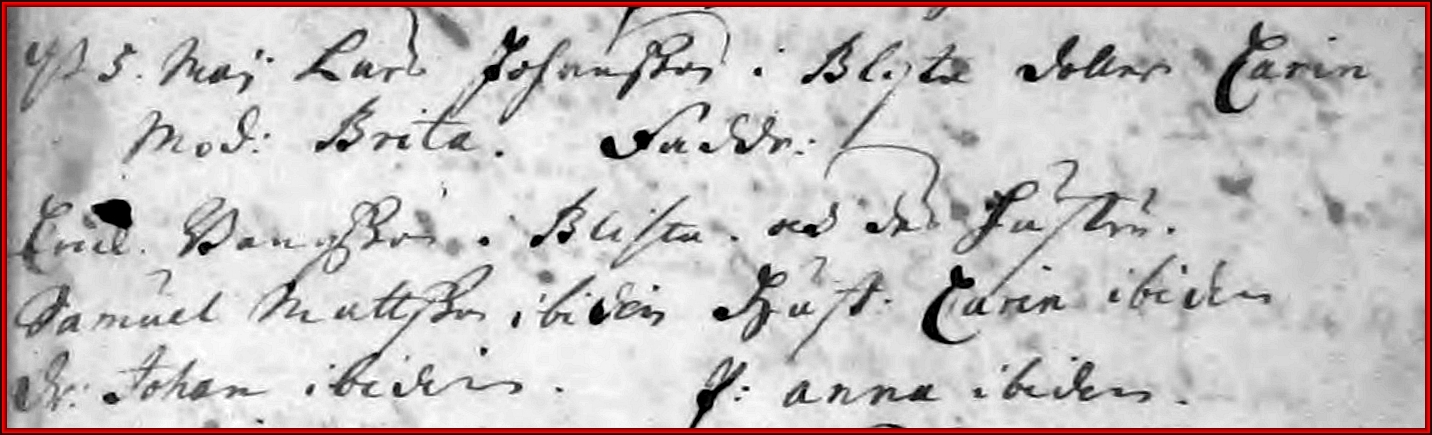 5. Maij Lars Johansson i Blysta dotter Carin
Mod: Brita. Faddr:
Eric Bengtsson i Blista. och des hustru.
Samuel Mattsson ibidem Hust. Carin ibidem
Dr: Johan ibidem. P: anna ibidem.